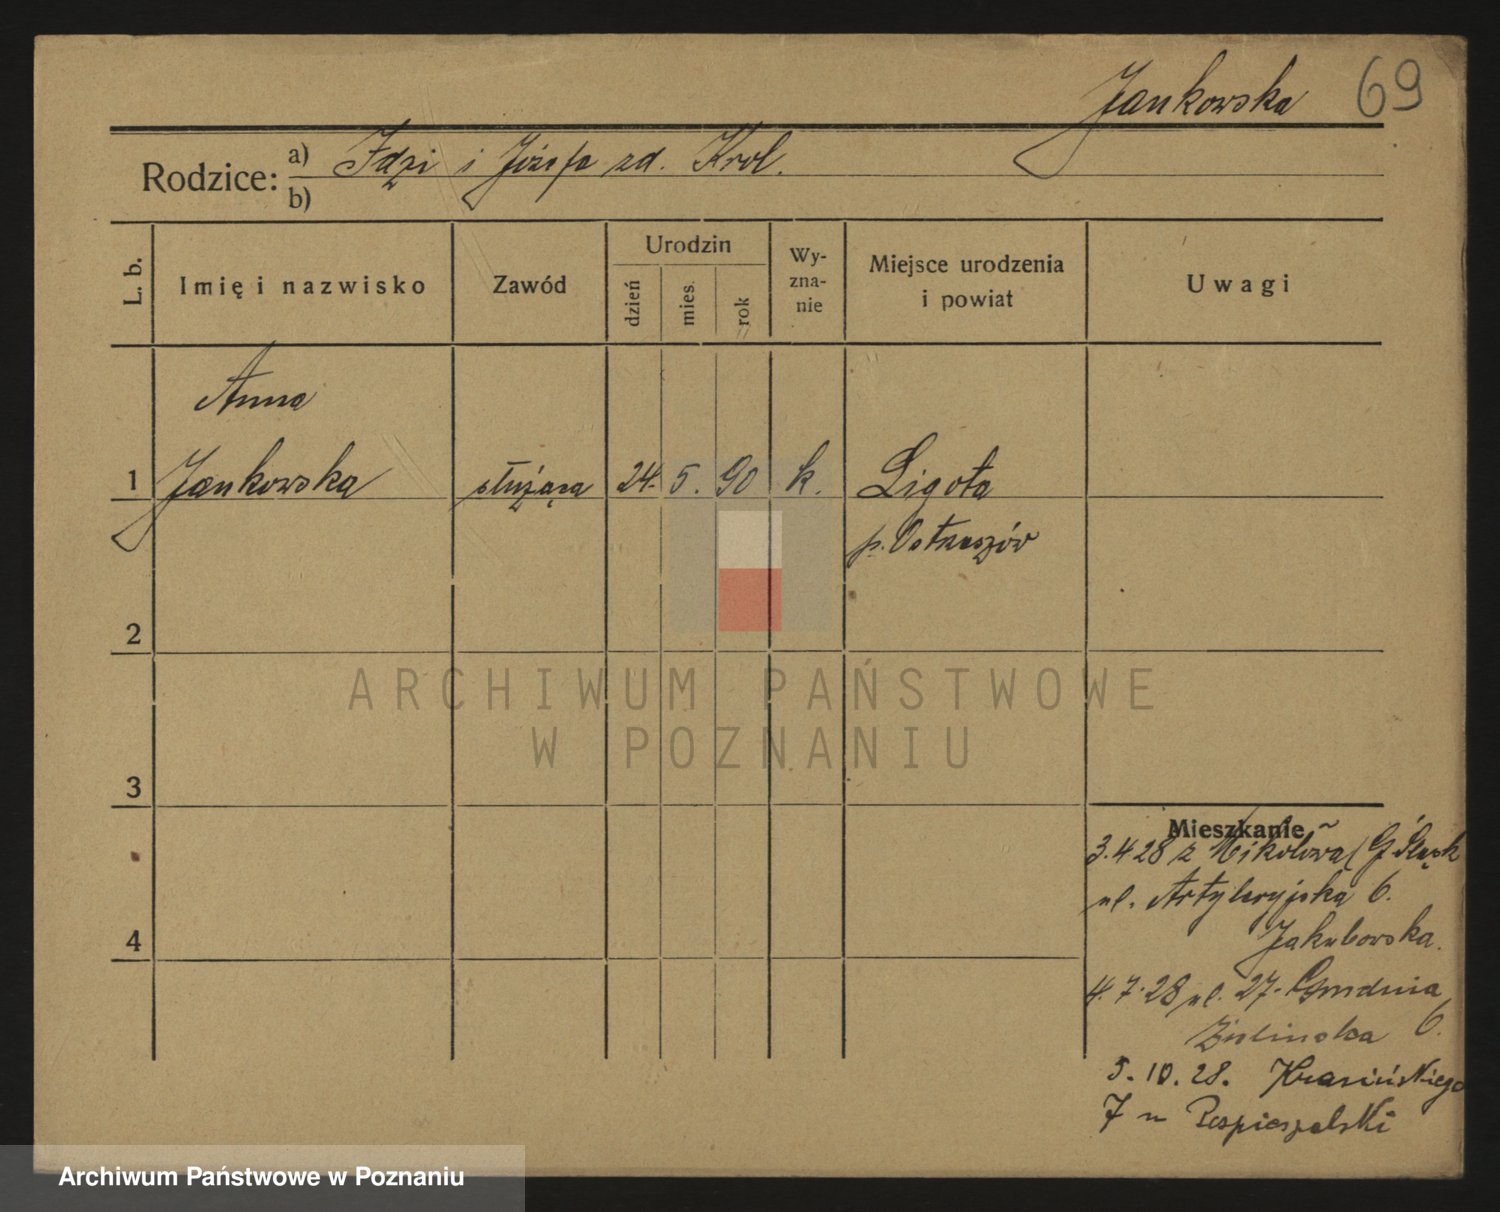 Jankowska 69
Rodzice: a) Idzi i Józefa zd. Krol.
b)
L. b. Imię i nazwisko Zawód Urodzin dzień mies. rok Wyznanie Miejsce urodzenia i powiat Uwagi
Anna
1 Jankowska służąca 24. 5. 90 k. Ligota
p. Ostrzeszów
2
ARCHIWUM PAŃSTWOWE
W POZNANIU
3
Mieszkanie
3.4 28 z Mikołowa / G. Śląsk
ul. Artyleryjska 6.
Jakubowska.
4
4. 7. 28 ul. 27. Grudnia
6.
5. 10. 28. Krasińskiego
7 u Pospieszalski
Archiwum Państwowe w Poznaniu